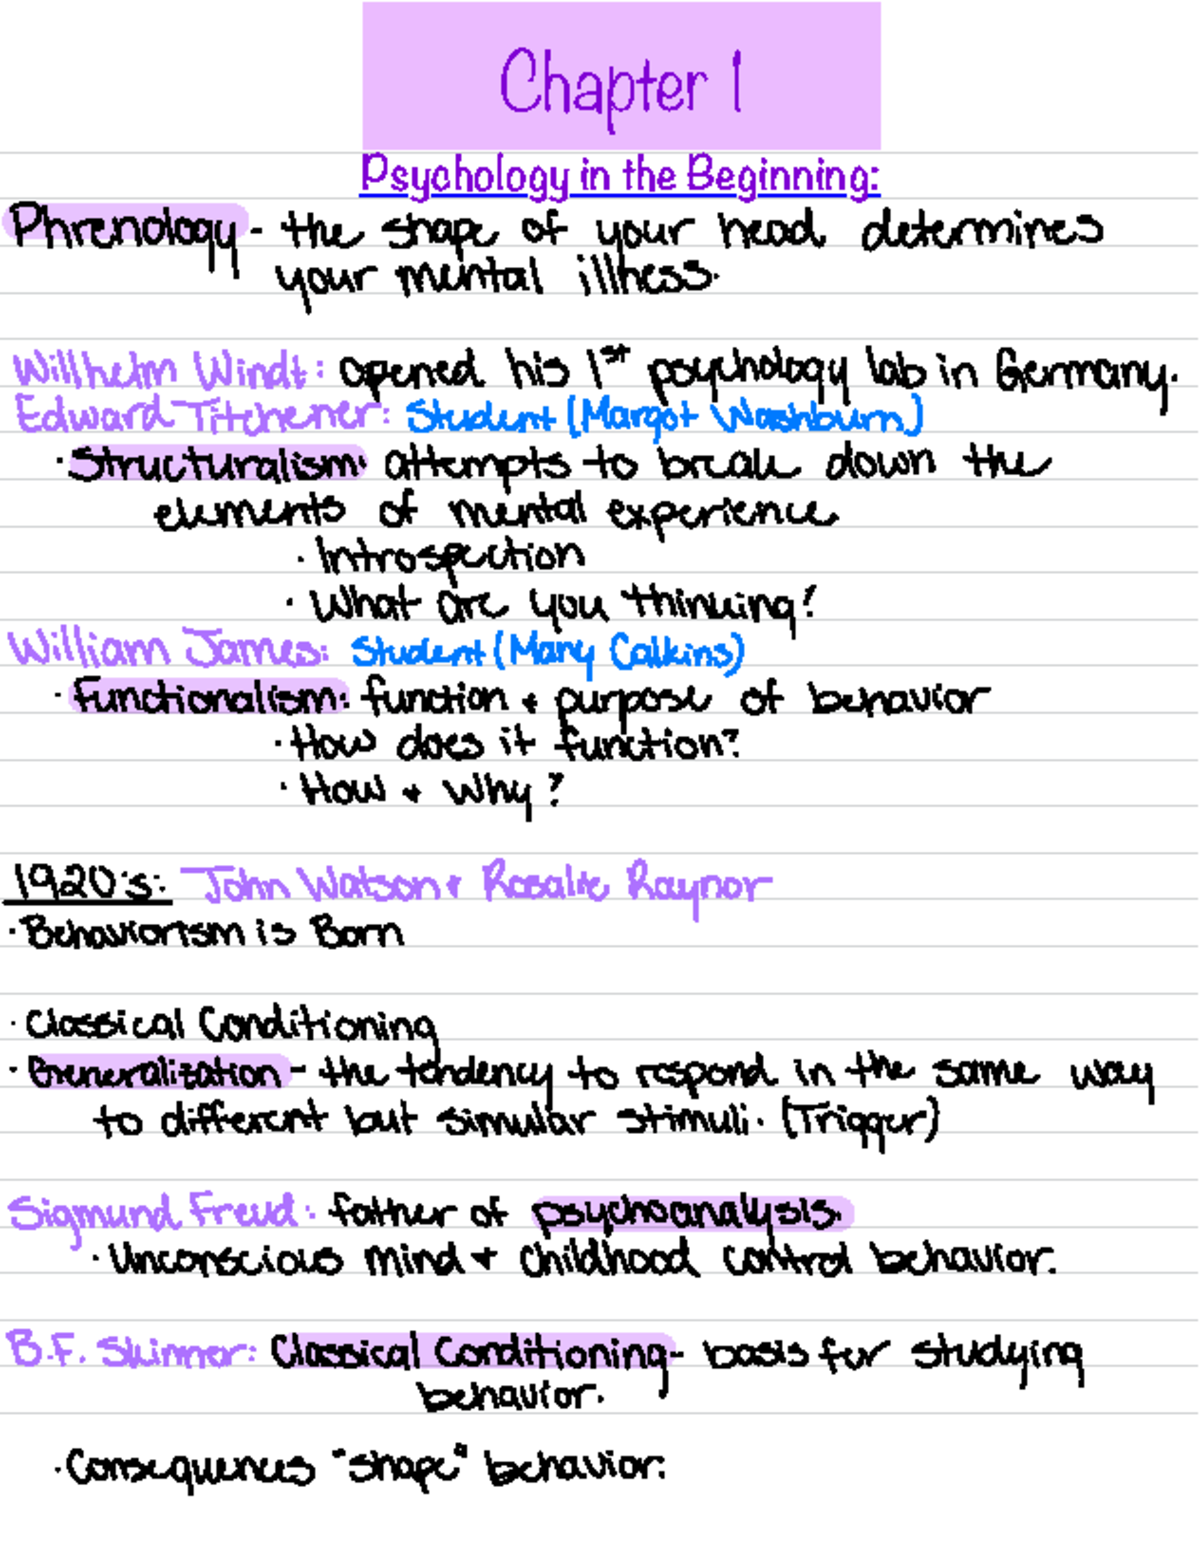 Chapter 1
Psychology in the Beginning:
Phrenology - the shape of your head determines
your mental illness.
Willhelm Windt: opened his 1st psychology lab in Germany.
Edward Titchener: Student (Margot Washburn)
· Structuralism: attempts to break down the
elements of mental experience
· Introspection
· What are you thinking?
William James: Student (Mary Calkins)
· Functionalism: function + purpose of behavior
· How does it function?
· How + Why?
1920's: John Watson + Rosalie Raynor
· Behaviorism is Born
· Classical Conditioning
· Generalization - the tendency to respond in the same way
to different but simular stimuli. (Trigger)
Sigmund Freud: father of psychoanalysis.
· Unconscious mind + childhood control behavior.
B.F. Skinner: Classical Conditioning - basis for studying
behavior.
· Consequences "shape" behavior.